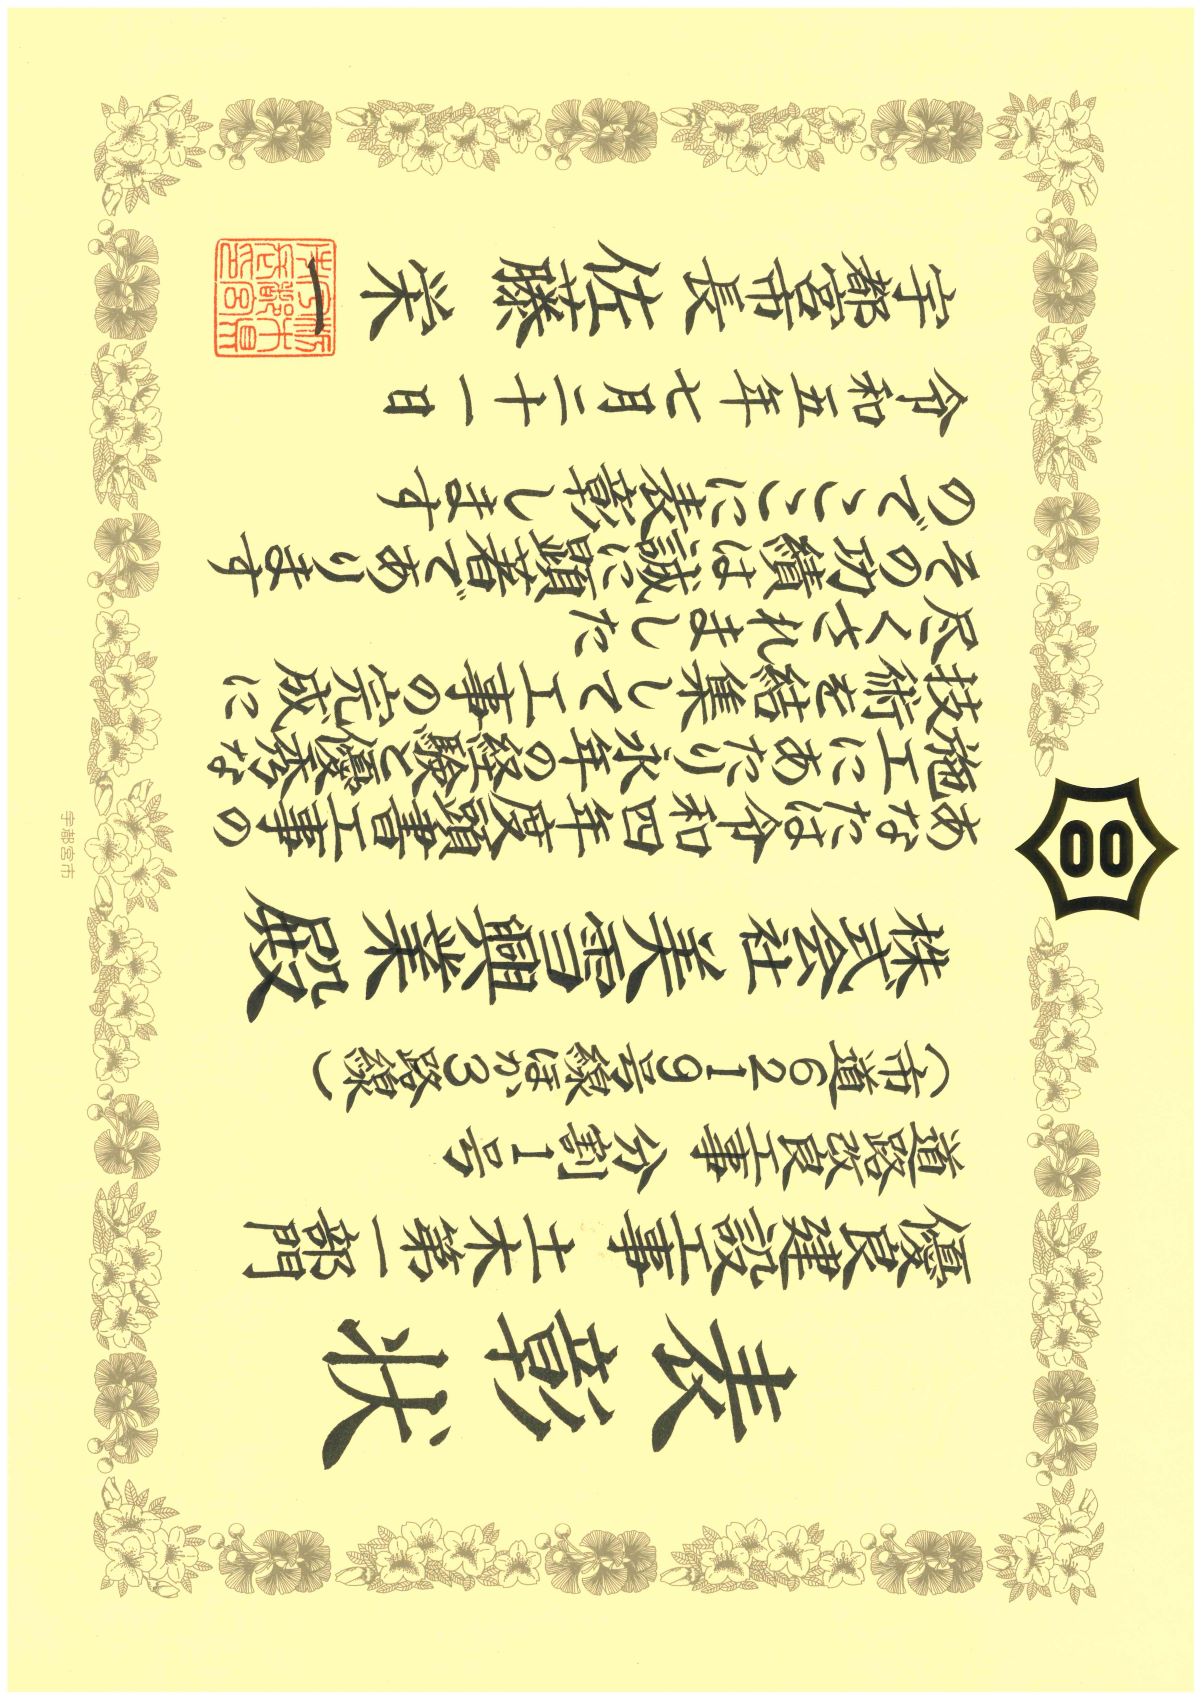 表彰状
優良建設工事 土木第一部門
道路改良工事 分割1号
(市道6219号線ほか3路線)
株式会社 美雪興業 殿
あなたは令和四年度頭書工事の
施工にあたり永年の経験と優秀な
技術を結集して工事の完成に
尽くされました
その功績は誠に顕著であります
のでここに表彰します
令和五年七月二十一日
宇都宮市長 佐藤 栄一
宇都宮市